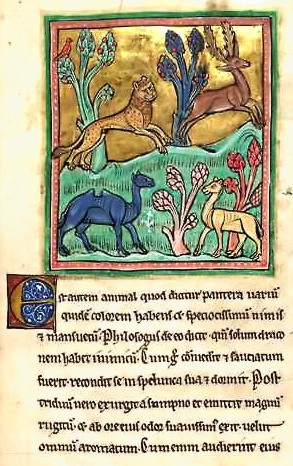 Est autem animal quod dicitur pantera variū
quidē colorem habens et speciosissimum nimis
et mansuetū. Phisologus de eo dicit. qm̄ solum draco
nem habet inimicū. Cum g̊ comederit et saciatum
fuerit recondit se in spelunca sua et dormit. Post
triduum vero exurgit a sompno et emittit magnū
rugitū et ab ore eius odor suavissimus exit velut
omnium aromatum. Cum enim audierint eius